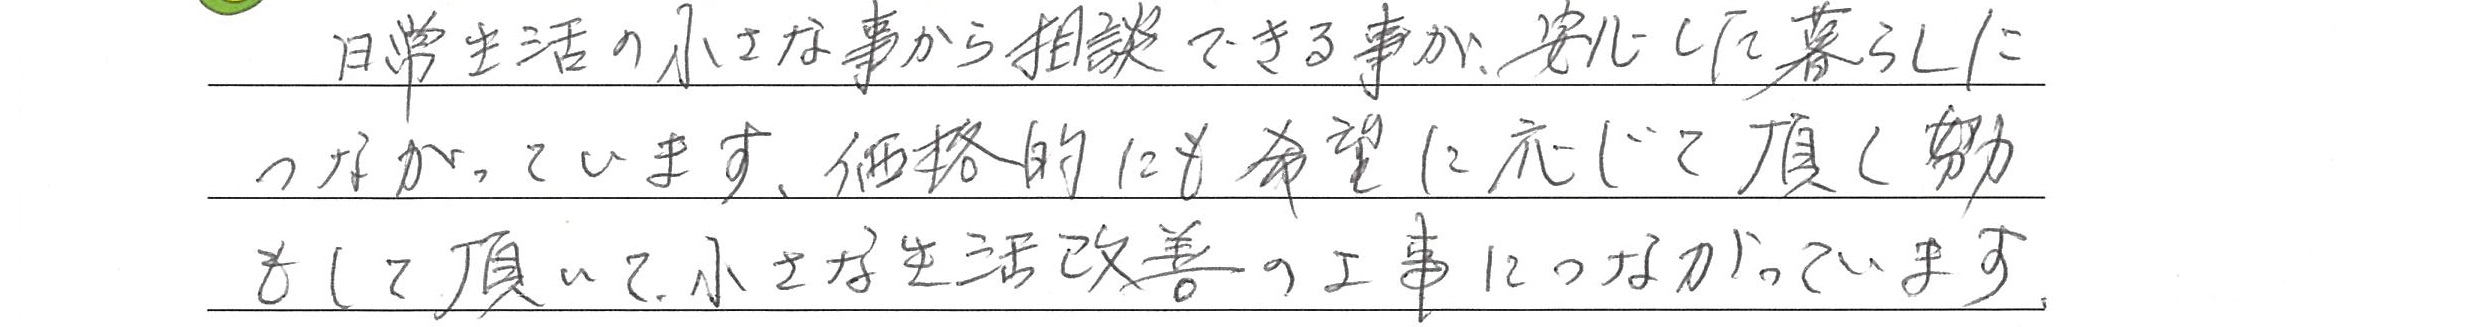 日常生活の小さな事から相談できる事が、安心して暮らしに
つながっています、価格的にも希望に応じて頂く努力
もして頂いて、小さな生活改善の工事につながっています、